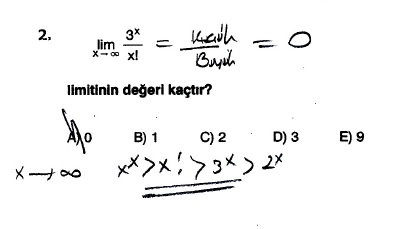 2. lim x→∞ 3ˣ/x! = Küçük/Büyük = 0
limitinin değeri kaçtır?
A) 0 B) 1 C) 2 D) 3 E) 9
x → ∞ xˣ > x! > 3ˣ > 2ˣ